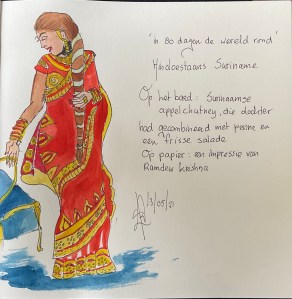 "in 80 dagen de wereld rond"
Hindoestaans Suriname
Op het bord : Surinaamse
appelchutney, die dochter
had gecombineerd met penne en
een frisse salade
Op papier : een impressie van
Ramdew Krishna
13/05/21